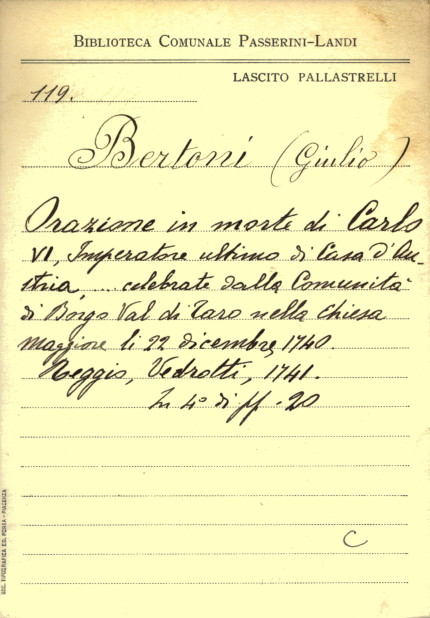 BIBLIOTECA COMUNALE PASSERINI-LANDI
LASCITO PALLASTRELLI
119.
Bertoni (Giulio)
Orazione in morte di Carlo
VI, Imperatore ultimo di Casa d'Au-
stria, ... celebrate dalla Comunità
di Borgo Val di Taro nella chiesa
maggiore li 22 dicembre, 1740.
Reggio, Vedrotti, 1741.
In 4° di ff. 20
C
SOC. TIPOGRAFICA ED. PORTA - PIACENZA